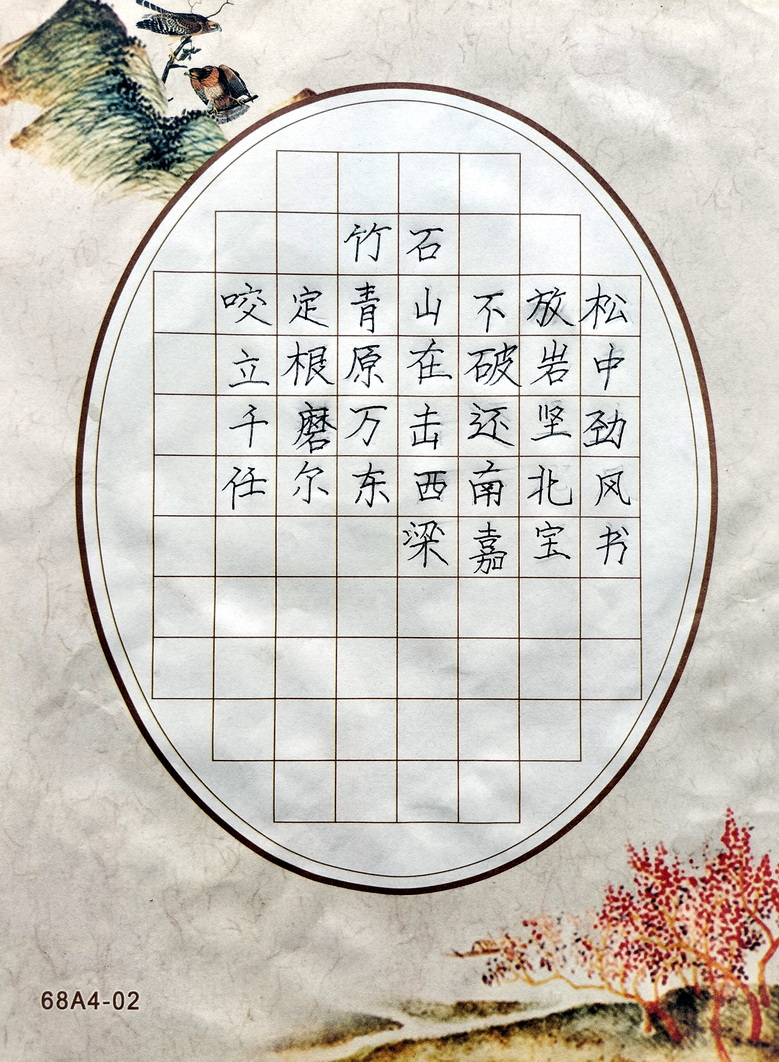 竹石
咬定青山不放松
立根原在破岩中
千磨万击还坚劲
任尔东西南北风
梁嘉宝书
68A4-02